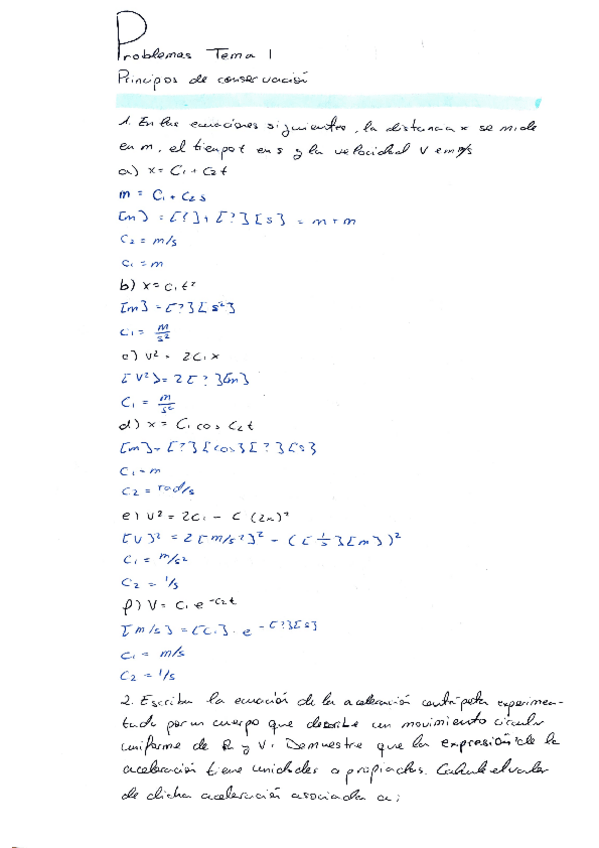 Problemas Tema 1
Principos de conservación
1. En las ecuaciones siguientes, la distancia x se mide
en m, el tiempo t en s y la velocidad V en m/s
a) x = C1 + C2t
m = C1 + C2 s
[m] = [?] + [?] [s] = m + m
C2 = m/s
C1 = m
b) x = C1 t²
[m] = [?] [s²]
C1 = m/s²
c) V² = 2C1x
[V²] = 2[?][m]
C1 = m/s²
d) x = C1 cos C2t
[m] = [?] [cos] [?] [s]
C1 = m
C2 = rad/s
e) V² = 2C1 - C (2x)²
[V]² = 2[m/s²]² - ([1/s][m])²
C1 = m/s²
C2 = 1/s
f) V = C1 e^-C2t
[m/s] = [C1] · e^-[?][s]
C1 = m/s
C2 = 1/s
2. Escriba la ecuación de la aceleración centrípeta experimen-
tada por un cuerpo que describe un movimiento circular
uniforme de R y V. Demuestre que la expresión de la
aceleración tiene unidades apropiadas. Calcule el valor
de dicha aceleración asociada a: